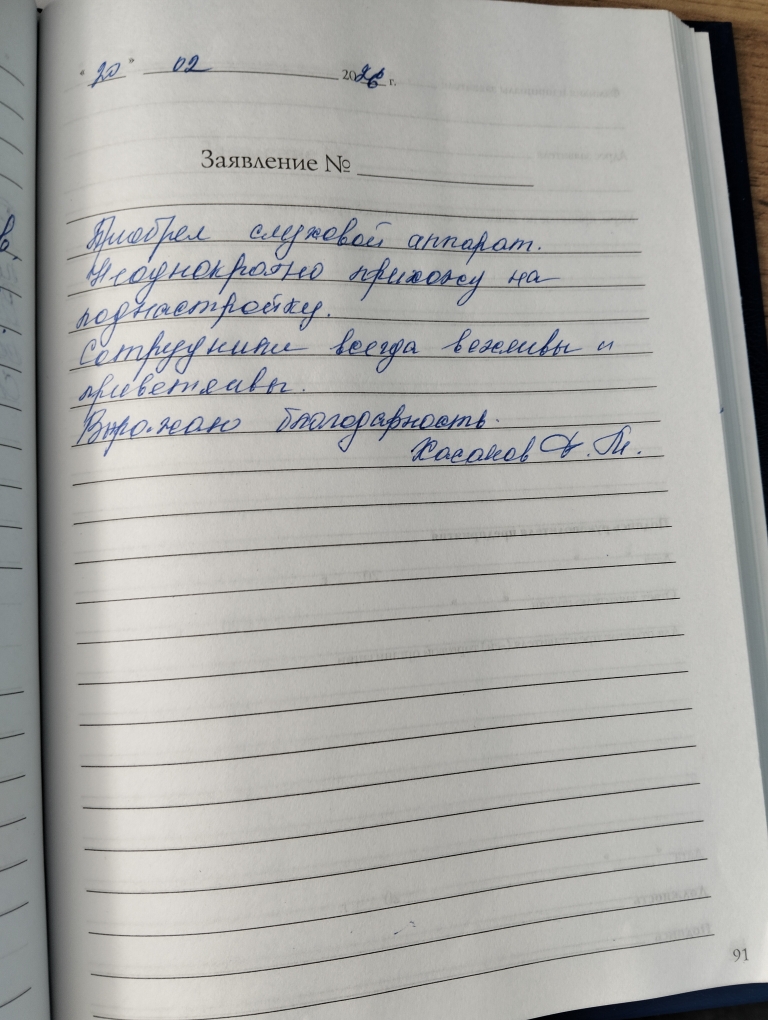 "20" 02 2026 г.
Заявление №
Приобрел слуховой аппарат.
Неоднократно прихожу на
поднастройку.
Сотрудники всегда вежливы и
приветливы.
Выражаю благодарность.
Хасанов Ф. М.
91